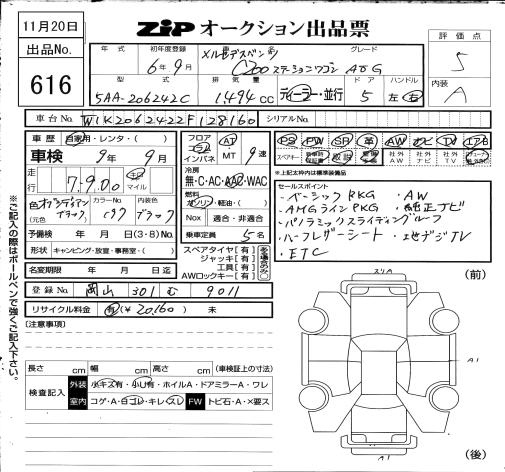 11月20日
ZIP オークション出品票
出品No.
616
評価点
5
内装
A
年式 初年度登録 車名 グレード
6年9月 メルセデスベンツ C200 ステーションワゴン AMG
型式 排気量 ドア ハンドル
5AA-206242C 1,494 cc ディーラー・並行 5 左・右
車台No. W1K2062422F128160 シリアルNo.
車歴 自家用・レンタ・( )
車検 9年9月
走行 7,900 km マイル
色 オブシディアンブラック
(元色)
カラーNo. 197
内装色 ブラック
予備検 年 月 日(3・8)No.
形状 キャンピング・放宣・事務室・( )
名変期限 年 月 日迄
フロア コラム インパネ
AT MT 9速
冷房
無・C・AC・AAC・WAC
燃料
ガソリン・軽油・( )
Nox 適合・非適合
乗車定員 5名
スペアタイヤ【有】
ジャッキ【有】
工具【有】
AWロックキー【有】
PS PW SR 革 AW ナビ TV エアB
スペアキー 取説 社外AW 社外ナビ 社外TV
※上記太枠内は標準装備品
セールスポイント
・ベーシックPKG ・AW
・AMGラインPKG ・純正ナビ
・パノラミックスライディングルーフ
・ハーフレザーシート ・地デジTV
・ETC
登録No. 岡山 301 む 9011
リサイクル料金 有(¥ 20,160 ) 未
[注意事項]
長さ cm 幅 cm 高さ cm (車検証上の寸法)
検査記入
外装 小キズ有・小凹有・ホイルA・ドアミラーA・ワレ
室内 コゲ・A・凹ゴレ・キレ・スレ FW トビ石・A・X要ス
※ご記入の際はボールペンで強くご記入下さい。
(前)
スリA
A1
A1
(後)